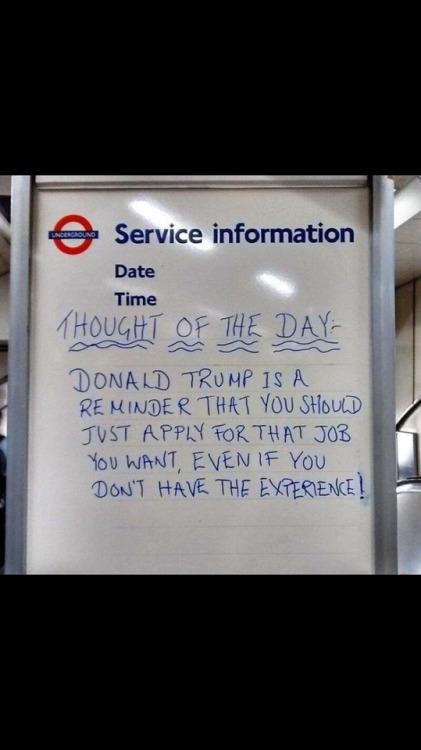 UNDERGROUND
Service information
Date
Time
THOUGHT OF THE DAY:-
DONALD TRUMP IS A
REMINDER THAT YOU SHOULD
JUST APPLY FOR THAT JOB
YOU WANT, EVEN IF YOU
DON'T HAVE THE EXPERIENCE!